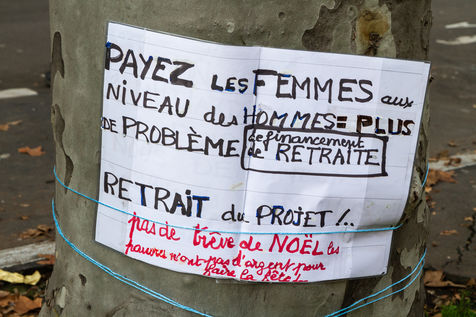 PAYEZ les FEMMES aux
NIVEAU des HOMMES = PLUS
DE PROBLÈME de financement
de RETRAITE
RETRAIT du PROJET !..
pas de trêve de NOËL les
pauvres n'ont pas d'argent pour
faire la fête